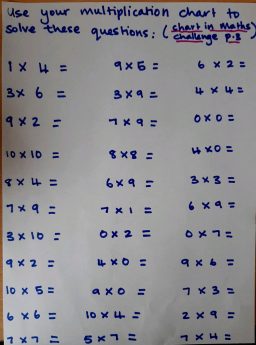 use your multiplication chart to
solve these questions: (chart in maths
challenge p.3)
1 x 4 = 9 x 5 = 6 x 2 =
3 x 6 = 3 x 9 = 4 x 4 =
9 x 2 = 7 x 9 = 0 x 0 =
10 x 10 = 8 x 8 = 4 x 0 =
8 x 4 = 6 x 9 = 3 x 3 =
7 x 9 = 7 x 1 = 6 x 9 =
3 x 10 = 0 x 2 = 0 x 7 =
9 x 2 = 4 x 0 = 9 x 6 =
10 x 5 = 9 x 0 = 7 x 3 =
6 x 6 = 10 x 4 = 2 x 9 =
7 x 7 = 5 x 7 = 7 x 4 =